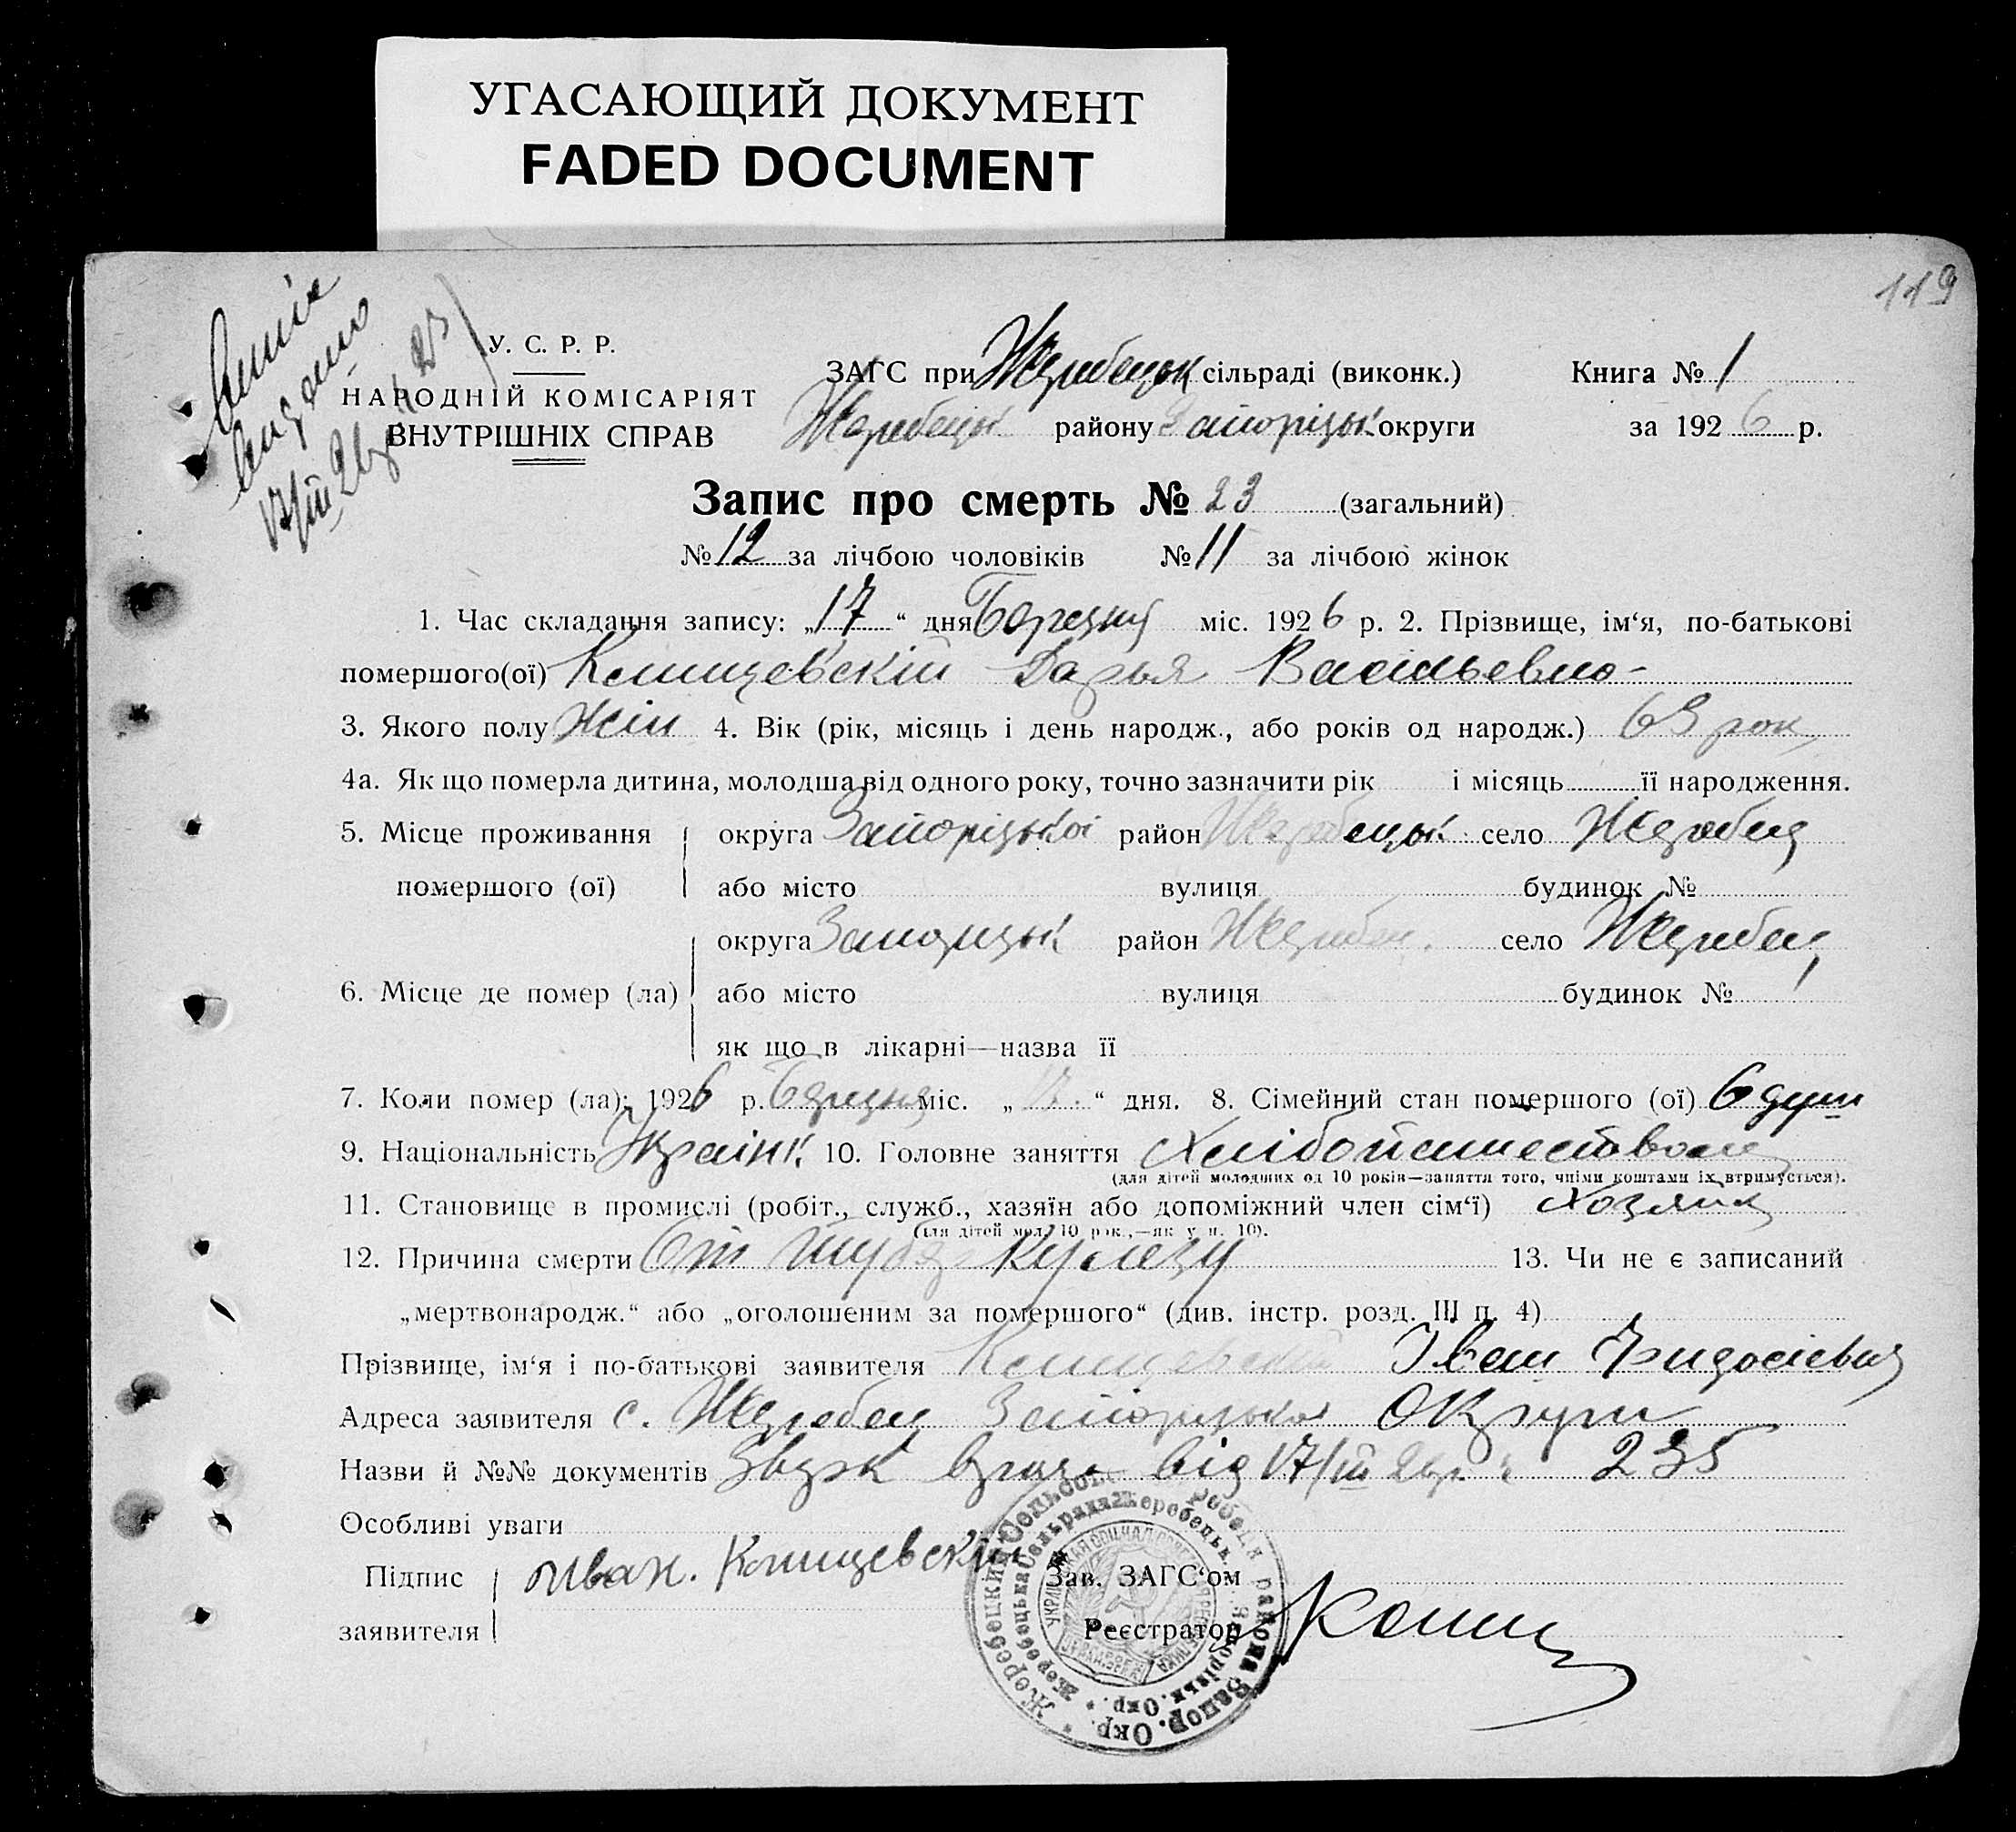 УГАСАЮЩИЙ ДОКУМЕНТ
FADED DOCUMENT
119
Копія
видано
17/III 26р. № 23
У. С. Р. Р.
НАРОДНІЙ КОМІСАРІЯТ
ВНУТРІШНІХ СПРАВ
ЗАГС при Жеребецьк сільраді (виконк.)
Жеребецьк району Запоріцьк округи
Книга № 1
за 1926 р.
Запис про смерть № 23 (загальний)
№ 12 за лічбою чоловіків № 11 за лічбою жінок
1. Час складання запису: „17“ дня Березня міс. 1926 р. 2. Прізвище, ім‘я, по-батькові
помершого(ої) Клищевскій Дарья Васильевно
3. Якого полу Жін 4. Вік (рік, місяць і день народж., або років од народж.) 63 рок
4а. Як що померла дитина, молодша від одного року, точно зазначити рік і місяць її народження.
5. Місце проживання помершого (ої) округа Запоріцької район Жеребецьк село Жеребец
або місто вулиця будинок №
6. Місце де помер (ла) округа Запоріцьк район Жеребец. село Жеребец
або місто вулиця будинок №
як що в лікарні—назва її
7. Коли помер (ла): 1926 р. Березня міс. „17“ дня. 8. Сімейний стан помершого (ої) 6 душ
9. Національність Україн. 10. Головне заняття Хлібопашеством
(для дітей молодших од 10 років—заняття того, чиїми коштами їх втримується).
11. Становище в промислі (робіт., служб., хазяїн або допоміжний член сім‘ї) Хозяин
(для дітей мол. 10 рок.,—як у п. 10).
12. Причина смерти От туберкулезу 13. Чи не є записаний
„мертвонародж.“ або „оголошеним за помершого“ (див. інстр. розд. III п. 4)
Прізвище, ім‘я і по-батькові заявителя Клищевский Іван
Адреса заявителя с. Жеребец Запоріцької Округи
Назви й №№ документів від 17/III 26р. № 235
Особливі уваги
Підпис заявителя Иван. Клищевскій
Зав. ЗАГС‘ом
Реєстратор